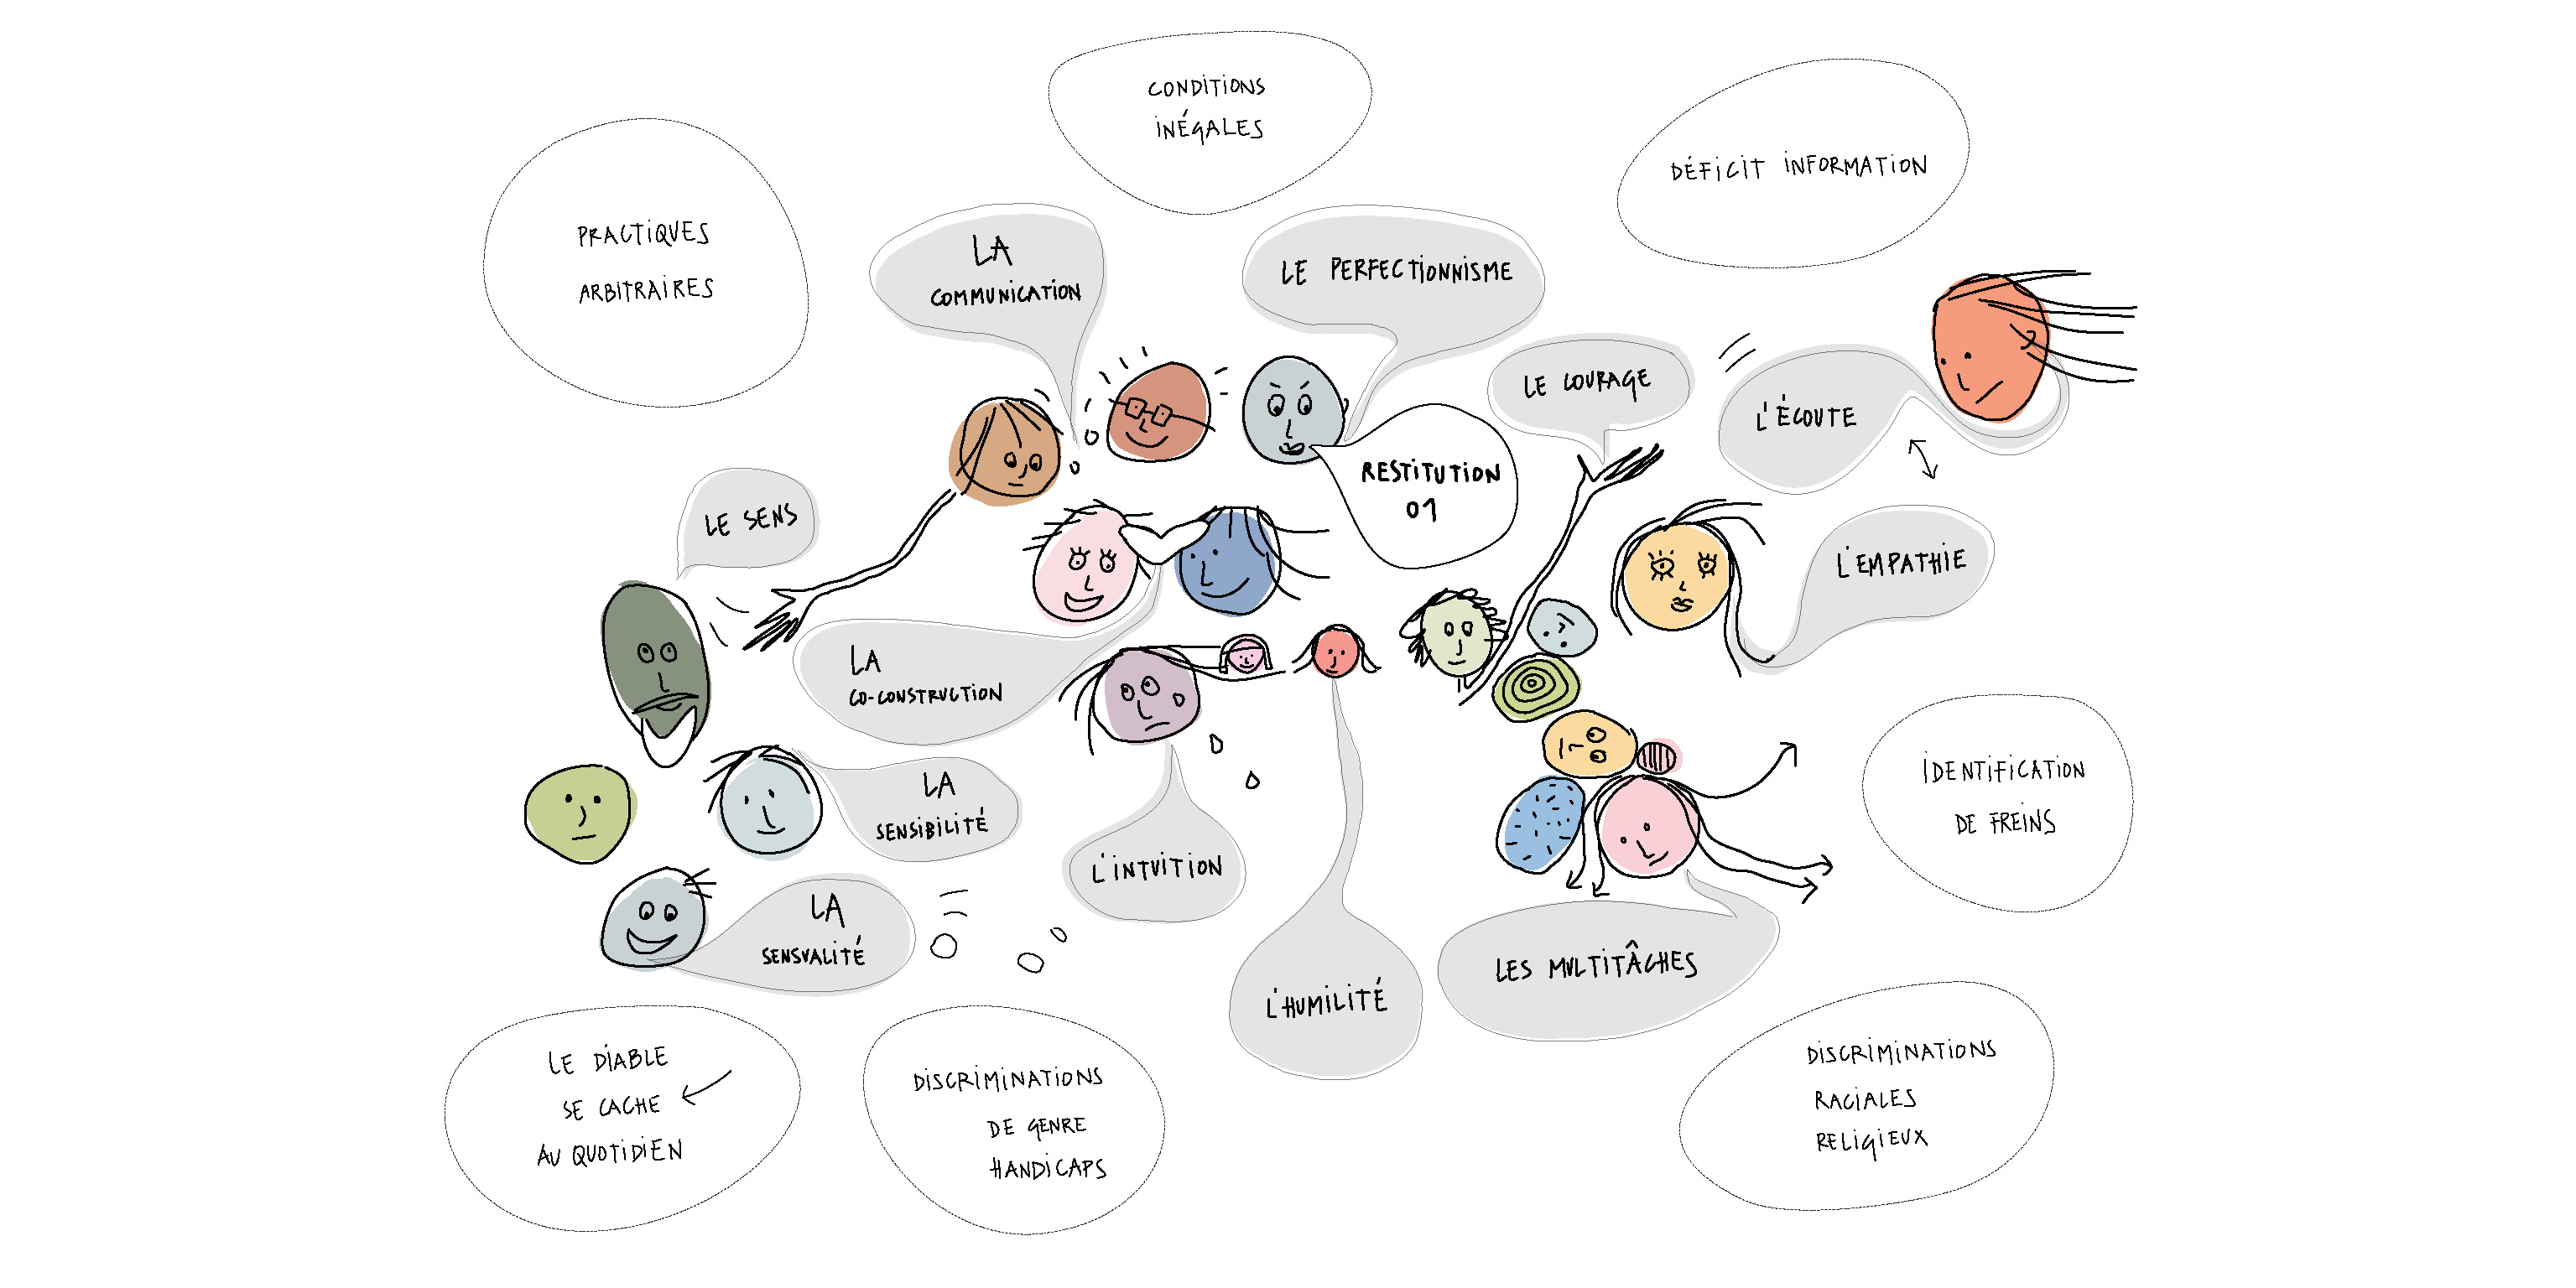 CONDITIONS
INÉGALES
DÉFICIT INFORMATION
PRACTIQUES
ARBITRAIRES
LA
COMMUNICATION
LE PERFECTIONNISME
LE COURAGE
L'ÉCOUTE
RESTITUTION
01
LE SENS
L'EMPATHIE
LA
CO-CONSTRUCTION
LA
SENSIBILITÉ
L'INTUITION
IDENTIFICATION
DE FREINS
LA
SENSUALITÉ
L'HUMILITÉ
LES MULTITÂCHES
LE DIABLE
SE CACHE
AU QUOTIDIEN
DISCRIMINATIONS
DE GENRE
HANDICAPS
DISCRIMINATIONS
RACIALES
RELIGIEUX